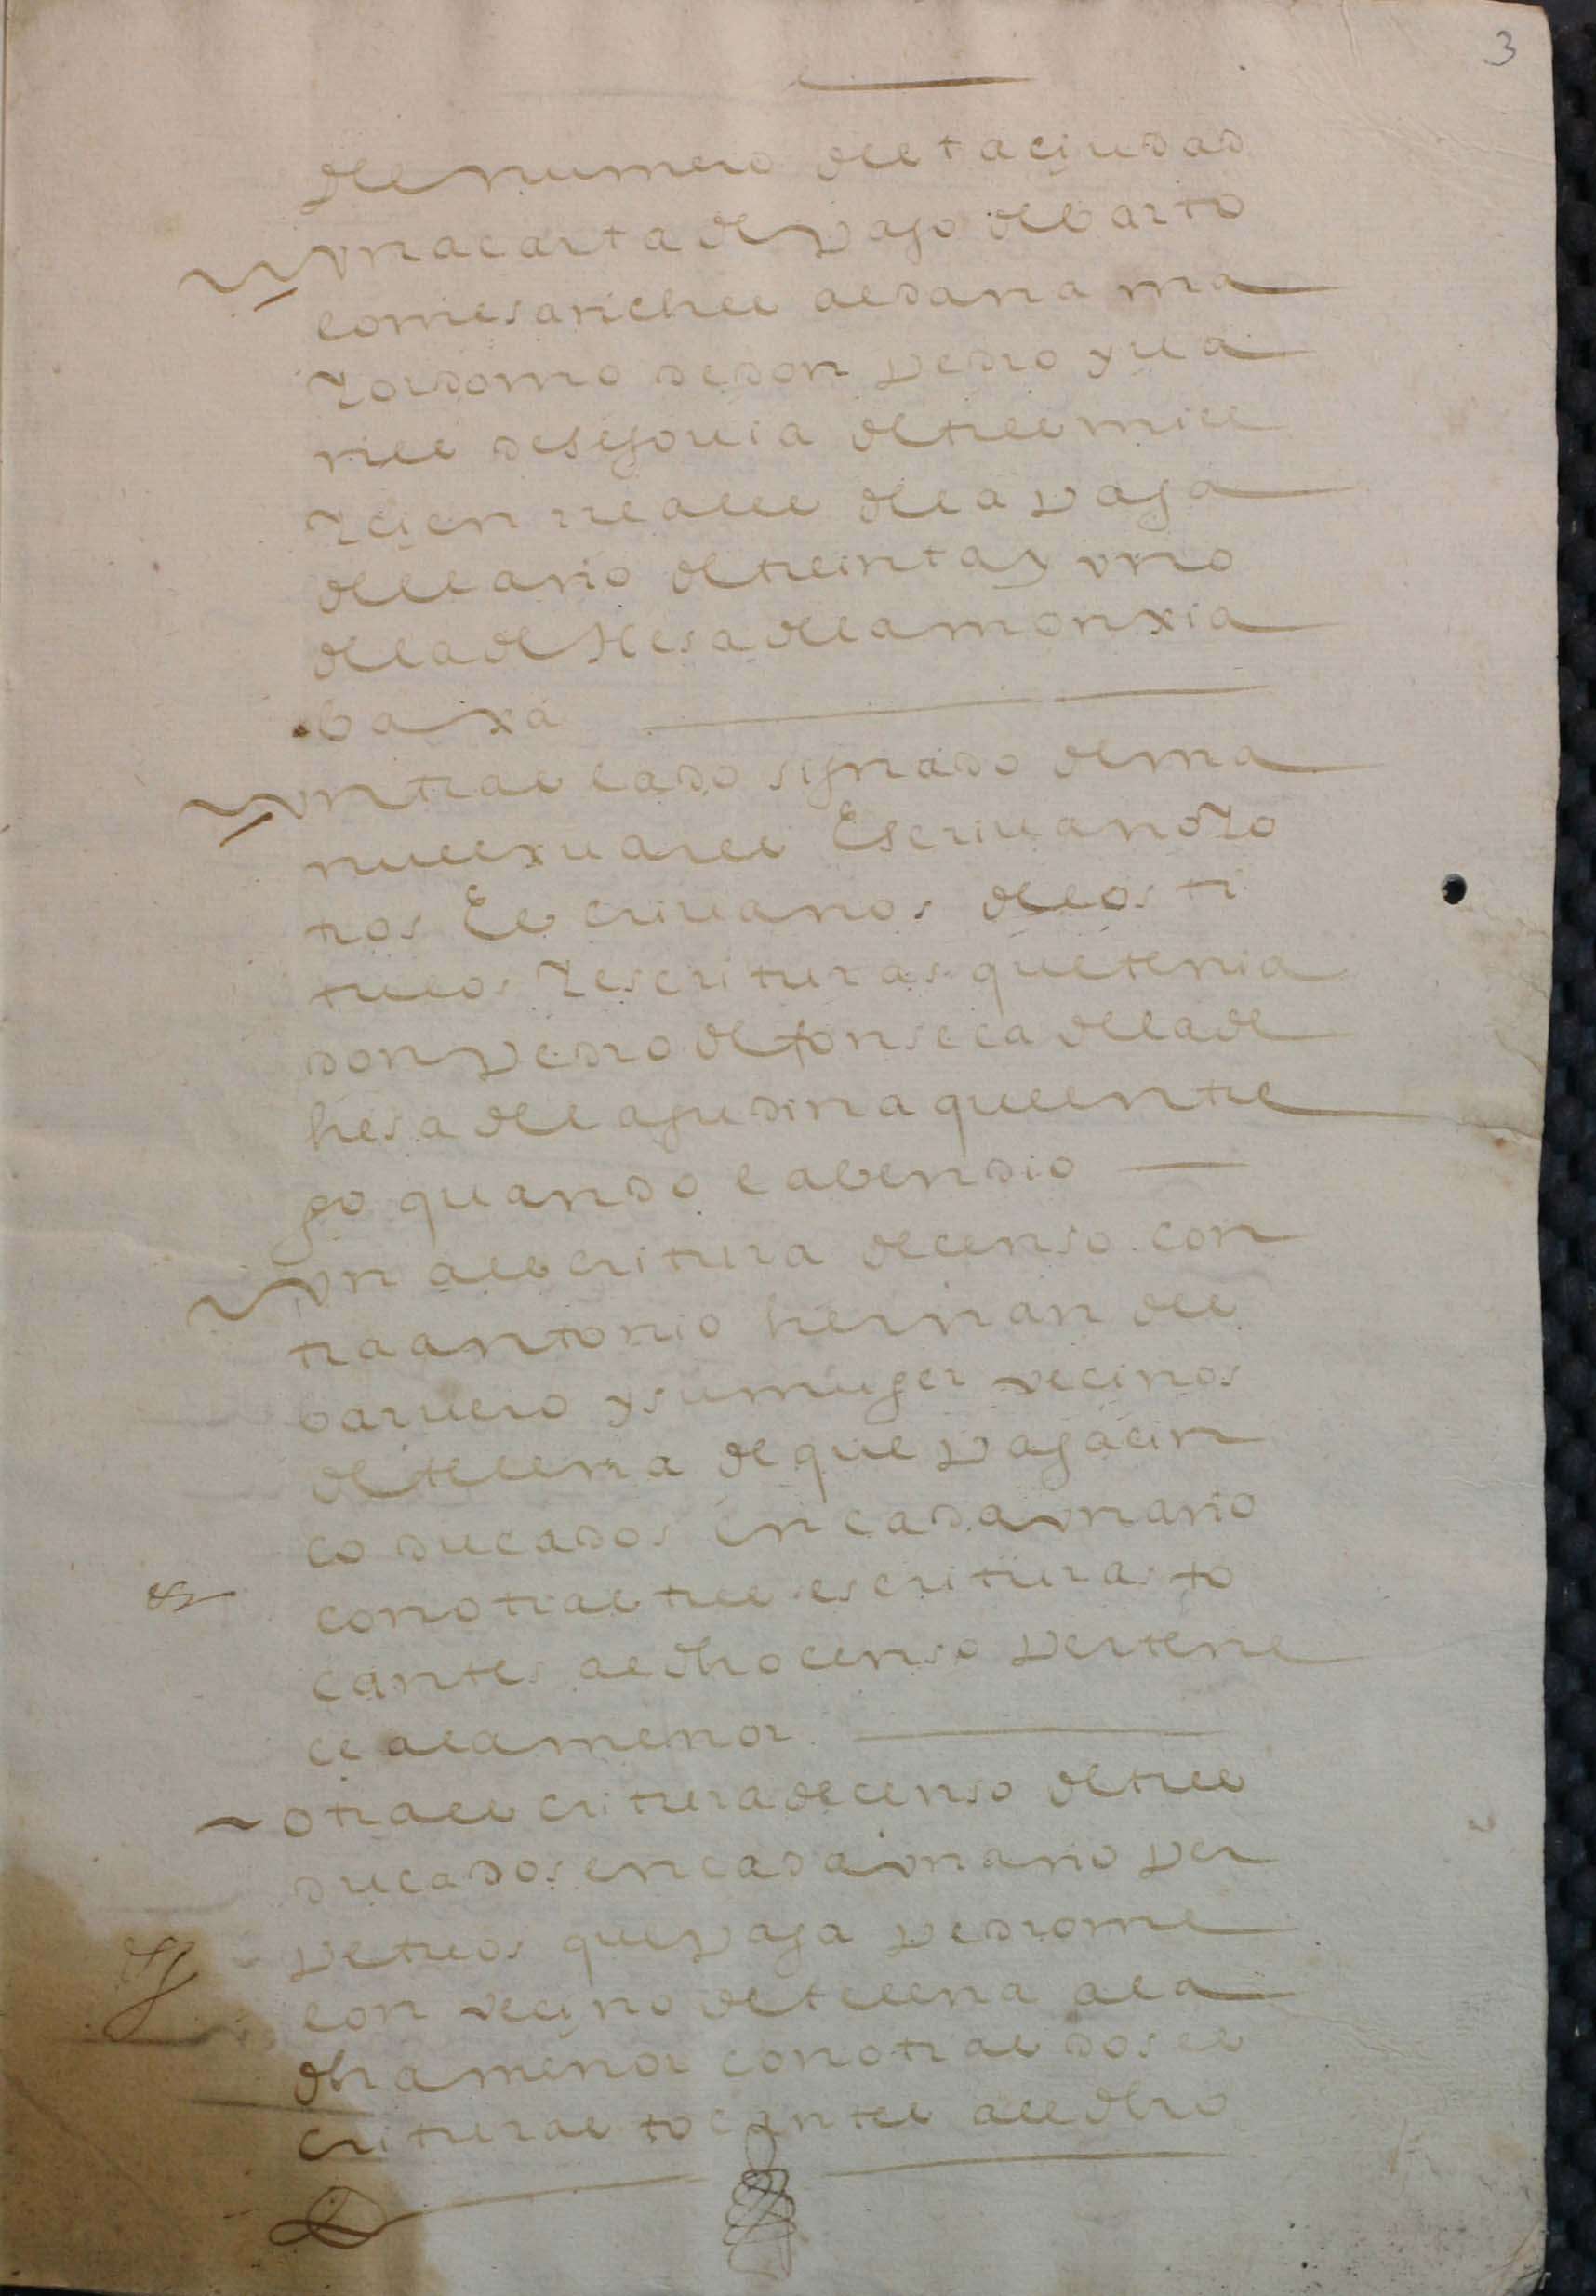 3
del numero desta ciudad
vna carta de pago de barto
lome sanches aldana ma
yordomo de don pedro xua
res de segouia de tres mill
y cien rreales de la paga
del año de treinta y vno
de la dehesa de la monxia
baxa
vn traslado signado de ma
nuel xuares Escriuano y o
tros Escriuanos de los ti
tulos y escrituras que tenia
don pedro de fonseca de la de
hesa del agudina que entre
go quando la bendio
vna escritura de censo con
tra antonio hernandes
baruero y su muger vecinos
de llerena de que paga cin
co ducados en cada vn año
con otras tres escrituras to
cantes al dho censo pertene
ce a la menor
otra escritura de censo de tres
ducados en cada vn año per
petuos que paga pedro me
lon vecino de llerena a la
dha menor con otras dos es
crituras tocantes al dho